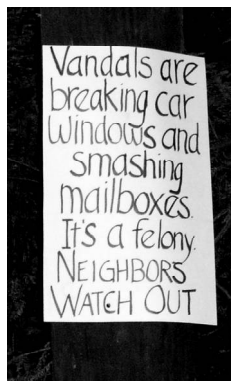 Vandals are
breaking car
windows and
smashing
mailboxes.
It's a felony.
NEIGHBORS
WATCH OUT